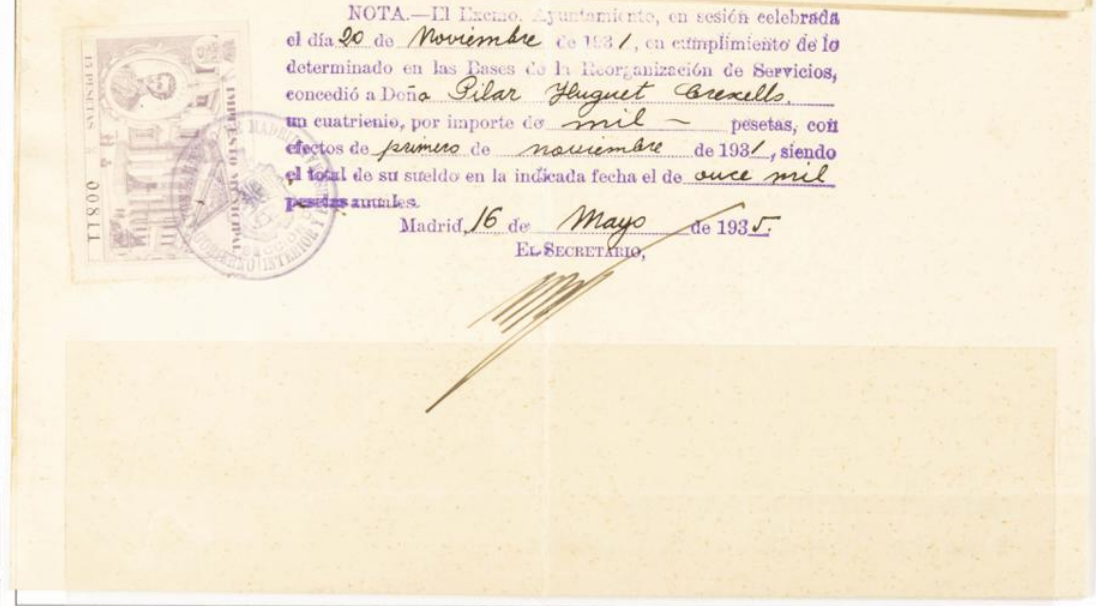 NOTA.—El Excmo. Ayuntamiento, en sesión celebrada
el día 20 de Noviembre de 1931, en cumplimiento de lo
determinado en las Bases de la Reorganización de Servicios,
concedió a Doña Pilar Huguet Crexells,
un cuatrienio, por importe de mil — pesetas, con
efectos de primero de noviembre de 1931, siendo
el total de su sueldo en la indicada fecha el de once mil
pesetas anuales.
Madrid, 16 de Mayo de 1935.
EL SECRETARIO,
IMPUESTO MUNICIPAL
15 PESETAS
00811